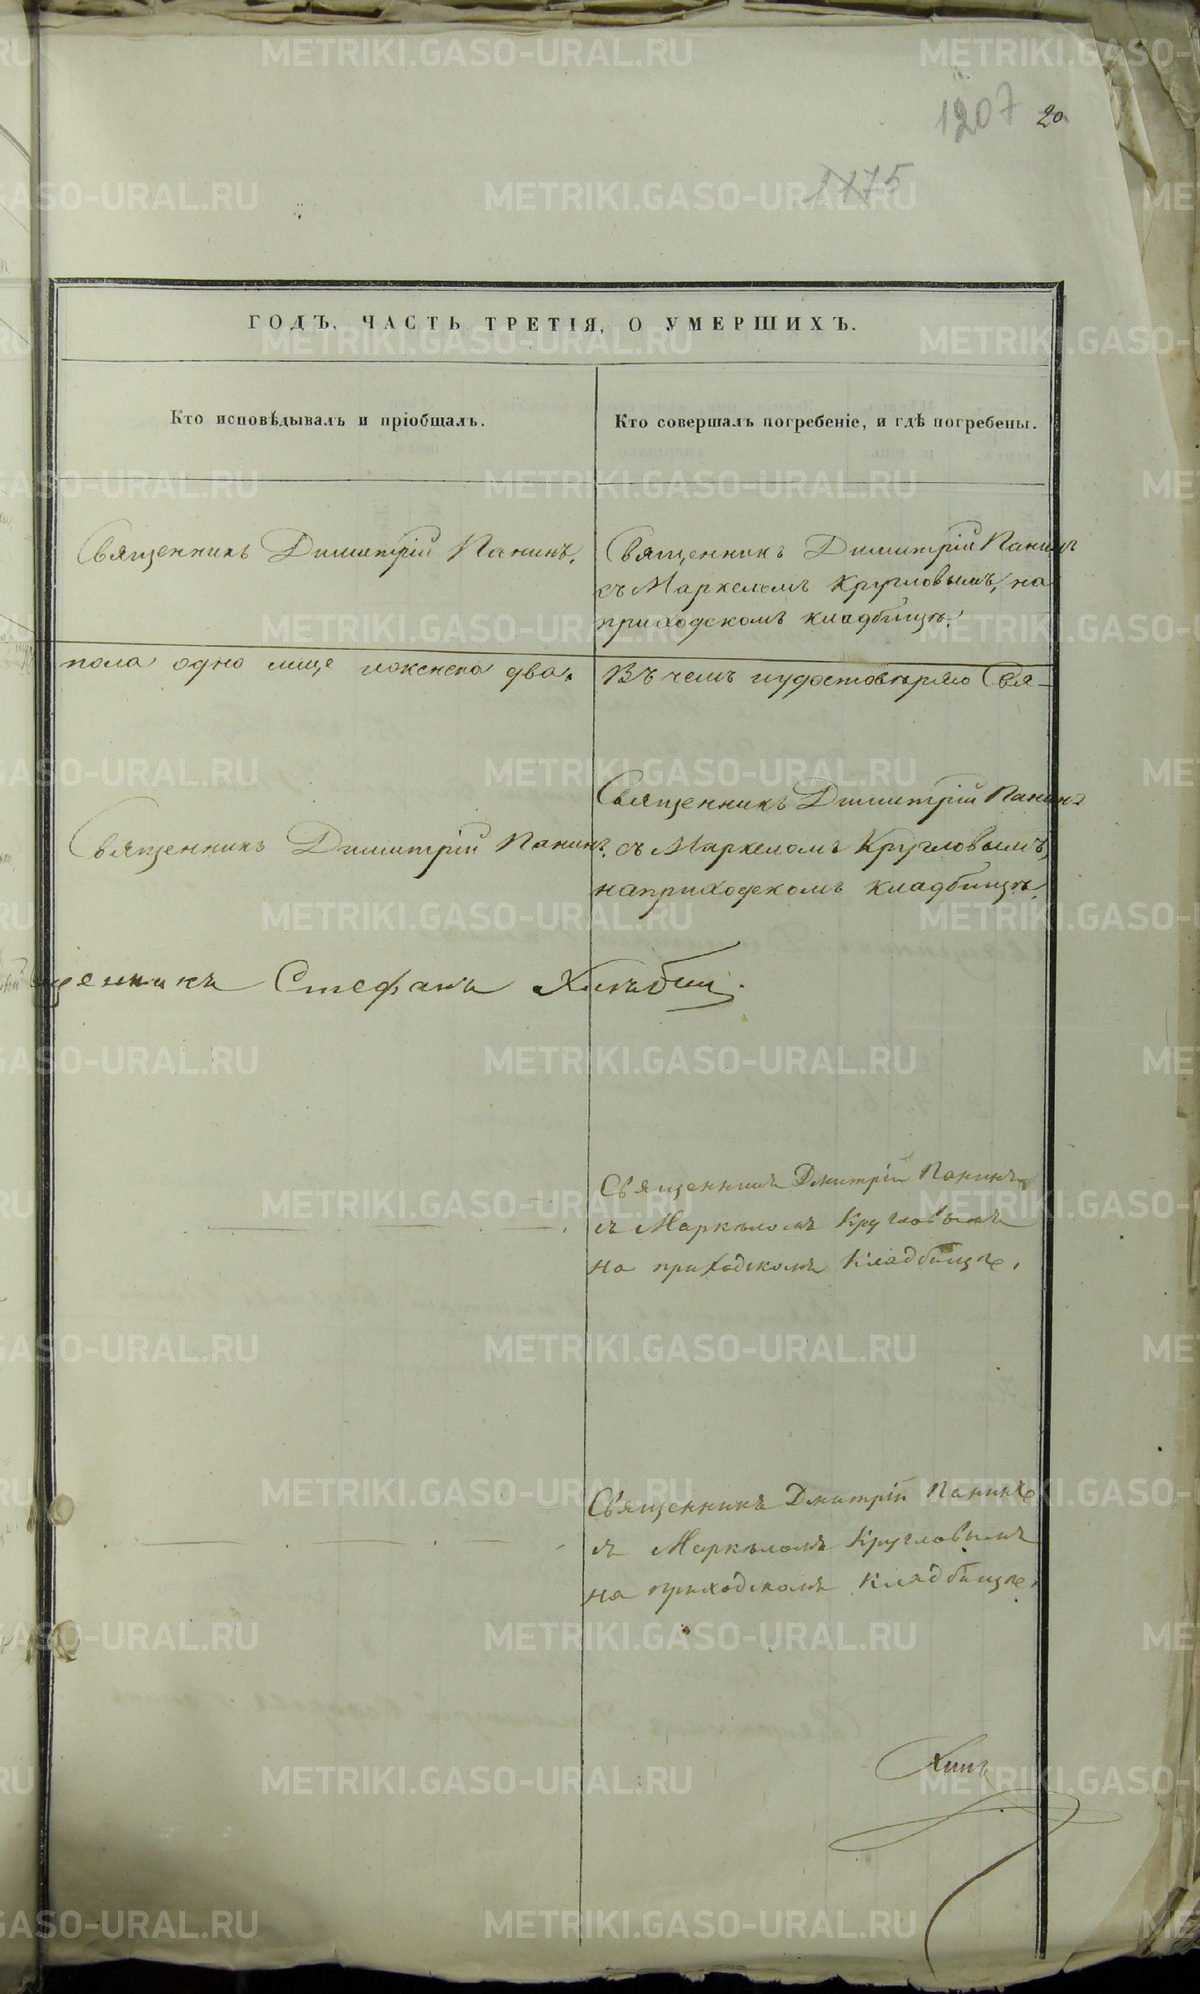 1207 20
1775
ГОДЪ, ЧАСТЬ ТРЕТІЯ, О УМЕРШИХЪ.
Кто исповѣдывалъ и пріобщалъ.
Кто совершалъ погребеніе, и гдѣ погребены.
Священникъ Димитрій Панинъ.
Священникъ Димитрій Панинъ
съ Маркеломъ Кругловымъ, на
приходскомъ кладбищѣ.
пола одно лице иженска два.
Въ чемъ иудостовѣряю Свя-
Священникъ Димитрій Панинъ.
Священникъ Димитрій Панинъ
съ Маркеломъ Кругловымъ,
наприходскомъ кладбищѣ.
щенникъ Стефанъ
Священникъ Дмитрій Панинъ
съ Маркѣломъ Кругловымъ
на приходскомъ Кладбищѣ.
Священникъ Дмитрій Панинъ
съ Маркѣломъ Кругловымъ
на приходскомъ Кладбищѣ.
METRIKI.GASO-URAL.RU